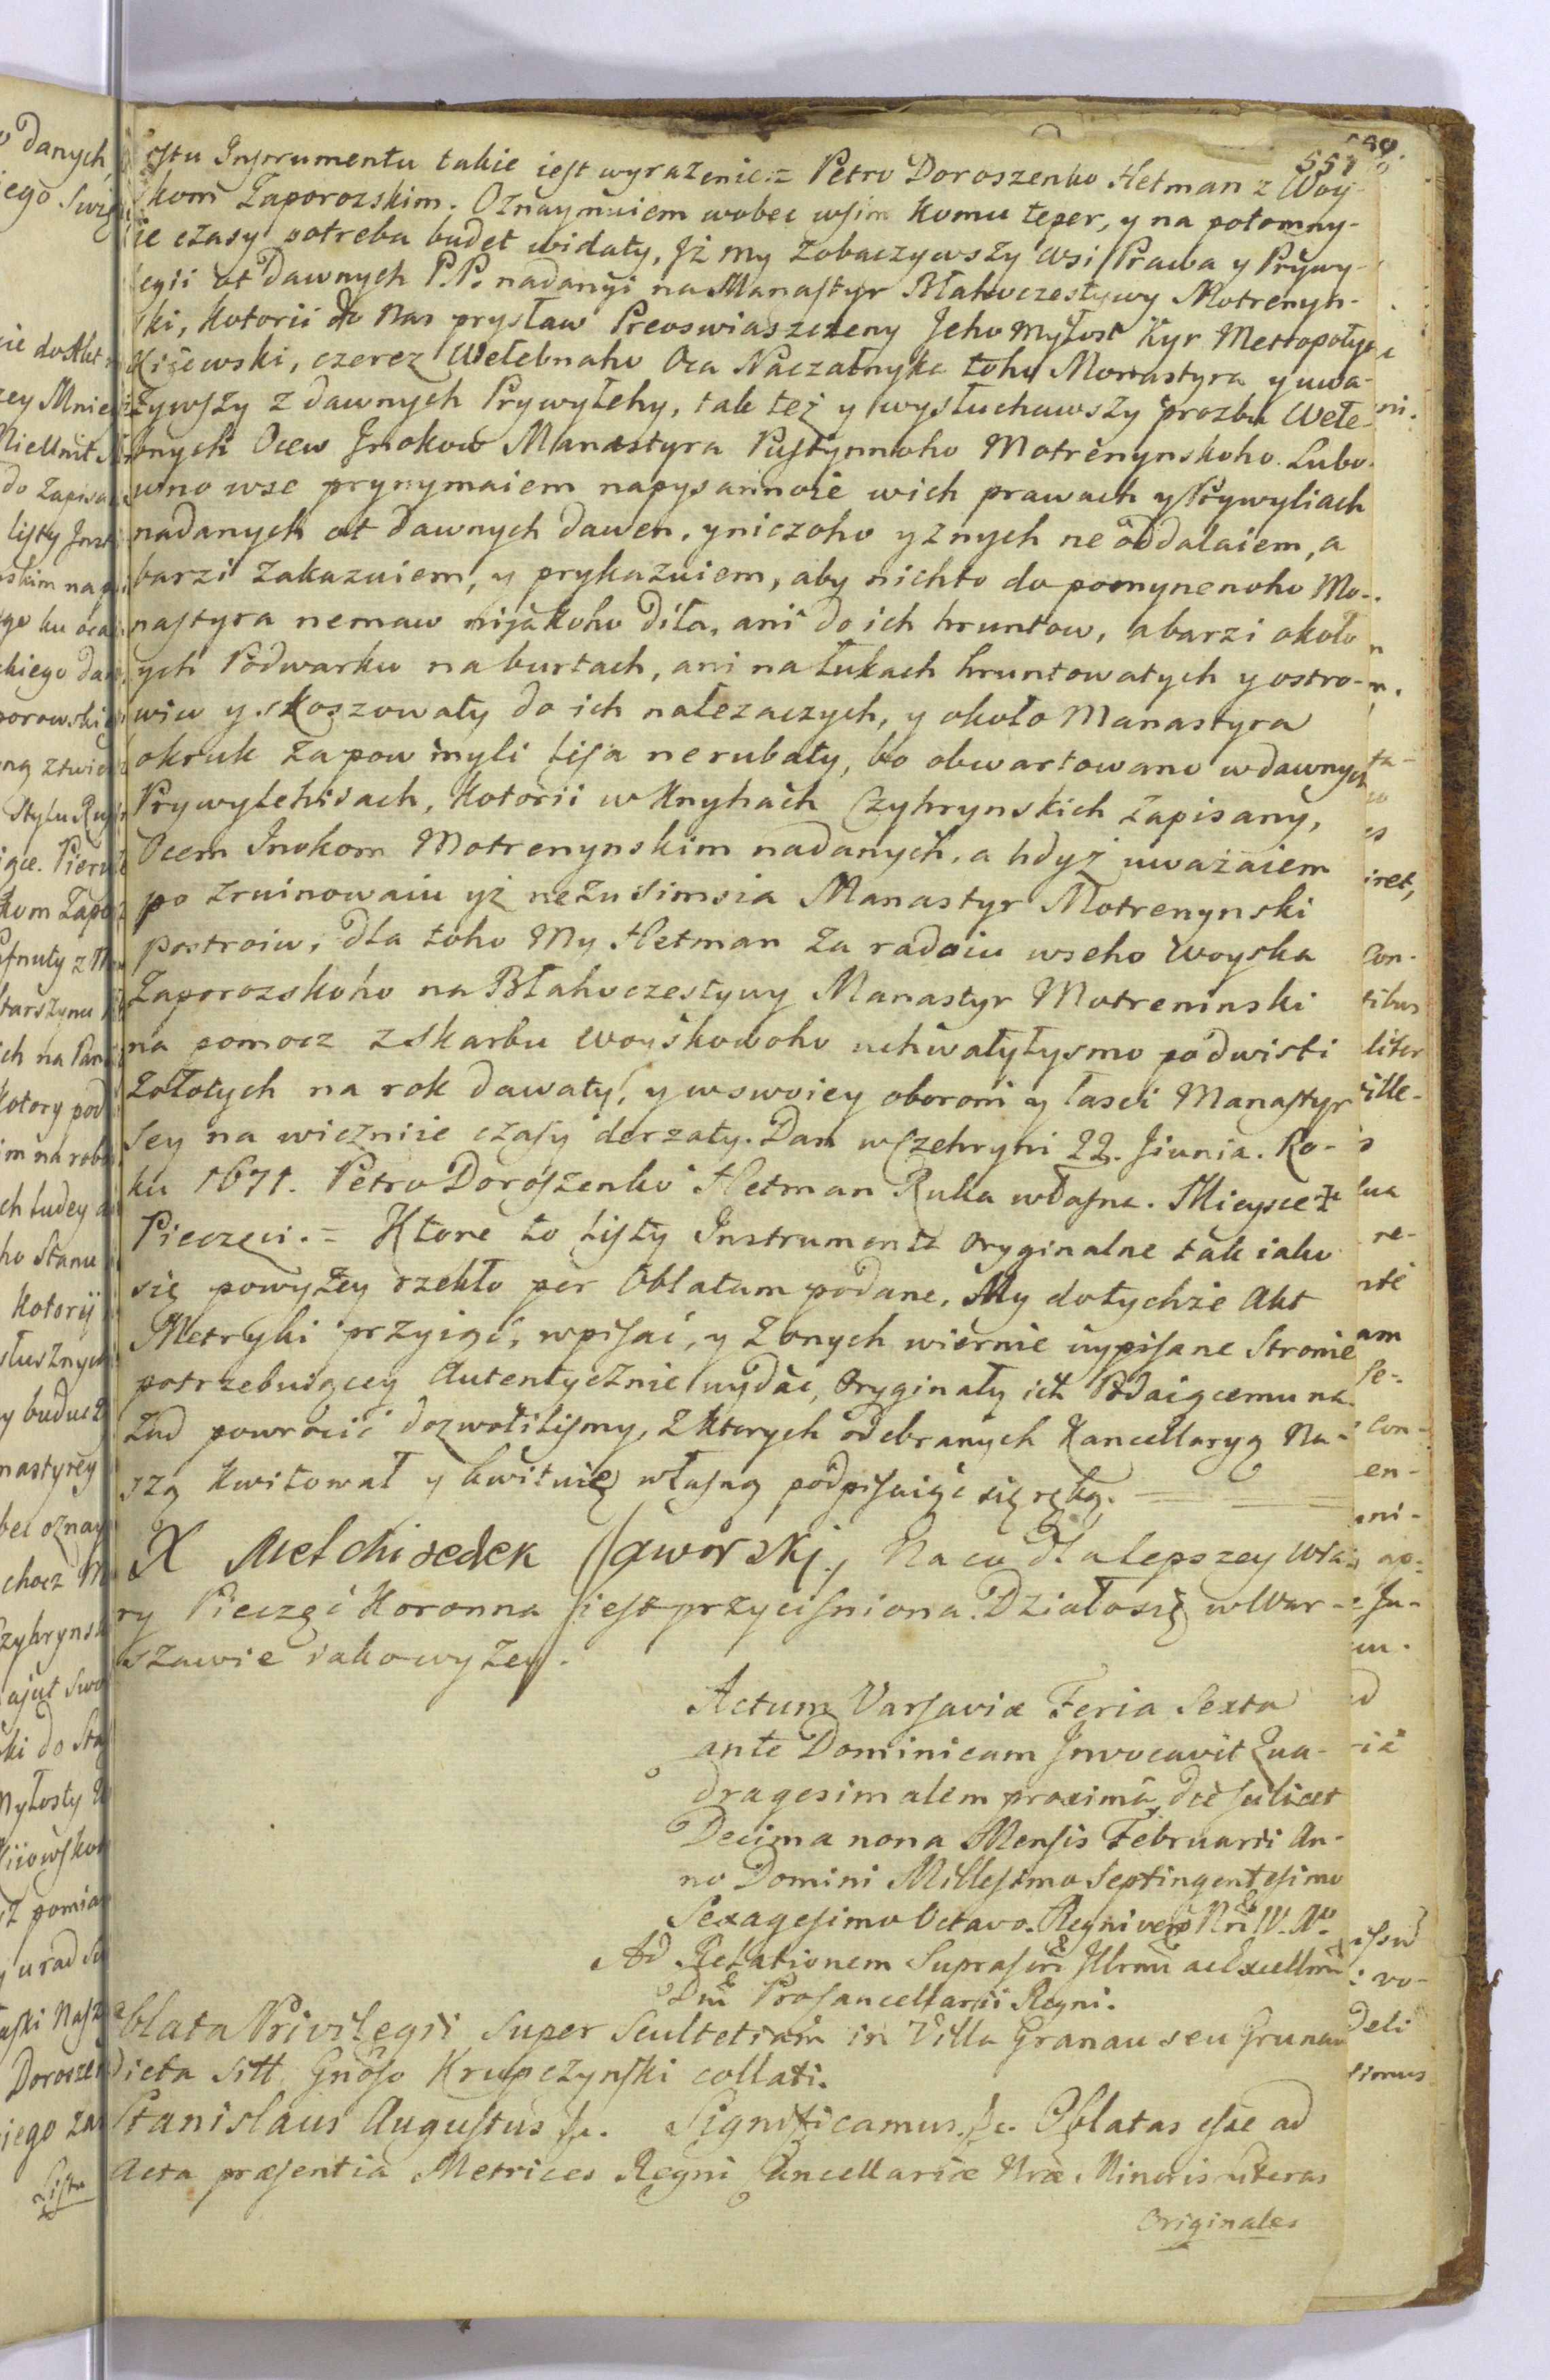 557
Listu Instrumentu takie iest wyrażenie = Petro Doroszenko Hetman z Woy-
skom Zaporozskim. Oznaymuiem wobec wsim komu teper, y na potomny-
ie czasy potreba budet widaty, Jż my zobaczywszy wsi Prawa y Prywy-
legii ot dawnych P.P. nadanyi na Manastyr Błahoczestywy Motrenyn-
ski, kotorii do Nas prysław Preoswiaszczeny Jeho Myłost Kyr Mettopolyt
Kijewski, czerez Welebnaho Oca Naczalnyka toho Monastyra y uwa-
żywszy z dawnych Prywyłehy, tak też y wysłuchawszy prozbu Wele-
bnych Ocew Jnokow Manastyra Pustynnoho Motrenynskoho. Lubo-
wno wse prynymaiem napysannoie wich prawach y Prywyliach
nadanych ot dawnych dawen, y niczoho yznych ne oddalaiem, a
barzi zakazuiem, y prykazuiem, aby nichto do pomynenoho Mo-
nastyra nemaw nijakoho diła, ani do ich hruntow, a barzi około
ych Podwarku na burtach, ani na łukach hruntowatych y ostro-
wiw y skoszowaty do ich należaczych, y około Manastyra
okruk za pow myli lisa nerubaty, bo obwartowano wdawnych
Prywylehisach, kotorii w Knyhach Czyhrynskich zapisany,
Ocem Inokom Motrenynskim nadanych, a hdyż uważaiem
po zruinowaiu yż nezusimsia Manastyr Motrenynski
postroiw, dla toho My Hetman za radoiu wseho Woyska
Zaporozskoho na Błahoczestywy Manastyr Motreninski
na pomocz z skarbu woyskowoho uchwałyłysmo po dwisti
Zołotych na rok dawaty, y w swoiey oboroni y łasci Manastyr
sey na wicznije czasy derzaty. Dan w Czehryni 22. Jiunia. Ro-
ku 1671. Petro Doroszenko Hetman Ruka własna. Mieysce
Pieczęci. = Ktore to Listy Instrumenta oryginalne tak iako
się powyżey rzekło per Oblatam podane, My do tychże Akt
Metryki przyiąć, wpisać, y z onych wiernie wypisane Stronie
potrzebuiącey Autentycznie wydać, Oryginały ich Podaiącemu na-
zad powrócić dozwoliliśmy, z ktorych odebranych Kancellaryą Na-
szą kwitował y kwituie własną podpisuiąc się ręką.
X Melchisedek Jaworskj., Na co dla lepszey wia-
ry Pieczęć Koronna iest przyciśniona. Działo się w War-
szawie iako wyżey.
Actum Varsaviæ Feria Sexta
ante Dominicam Jnvocavit Qua-
dragesimalem proxima, die scilicet
Decima nona Mensis Februarii An-
no Domini Millesimo Septingentesimo
Sexagesimo Octavo. Regni vero Nri IV. Ao.
Ad Relationem Suprascri Illrmi ac Excellmi
Dni Procancellarii Regni.
Oblata Privilegii super Scultetiam in Villa Granau seu Grunau
dicta sitt. Gnoso Krupczynski collati.
Stanislaus Augustus &c. Significamus &c. Oblatas esse ad
Acta præsentia Metrices Regni Cancellariæ Nræ Minoris Literas
Originales